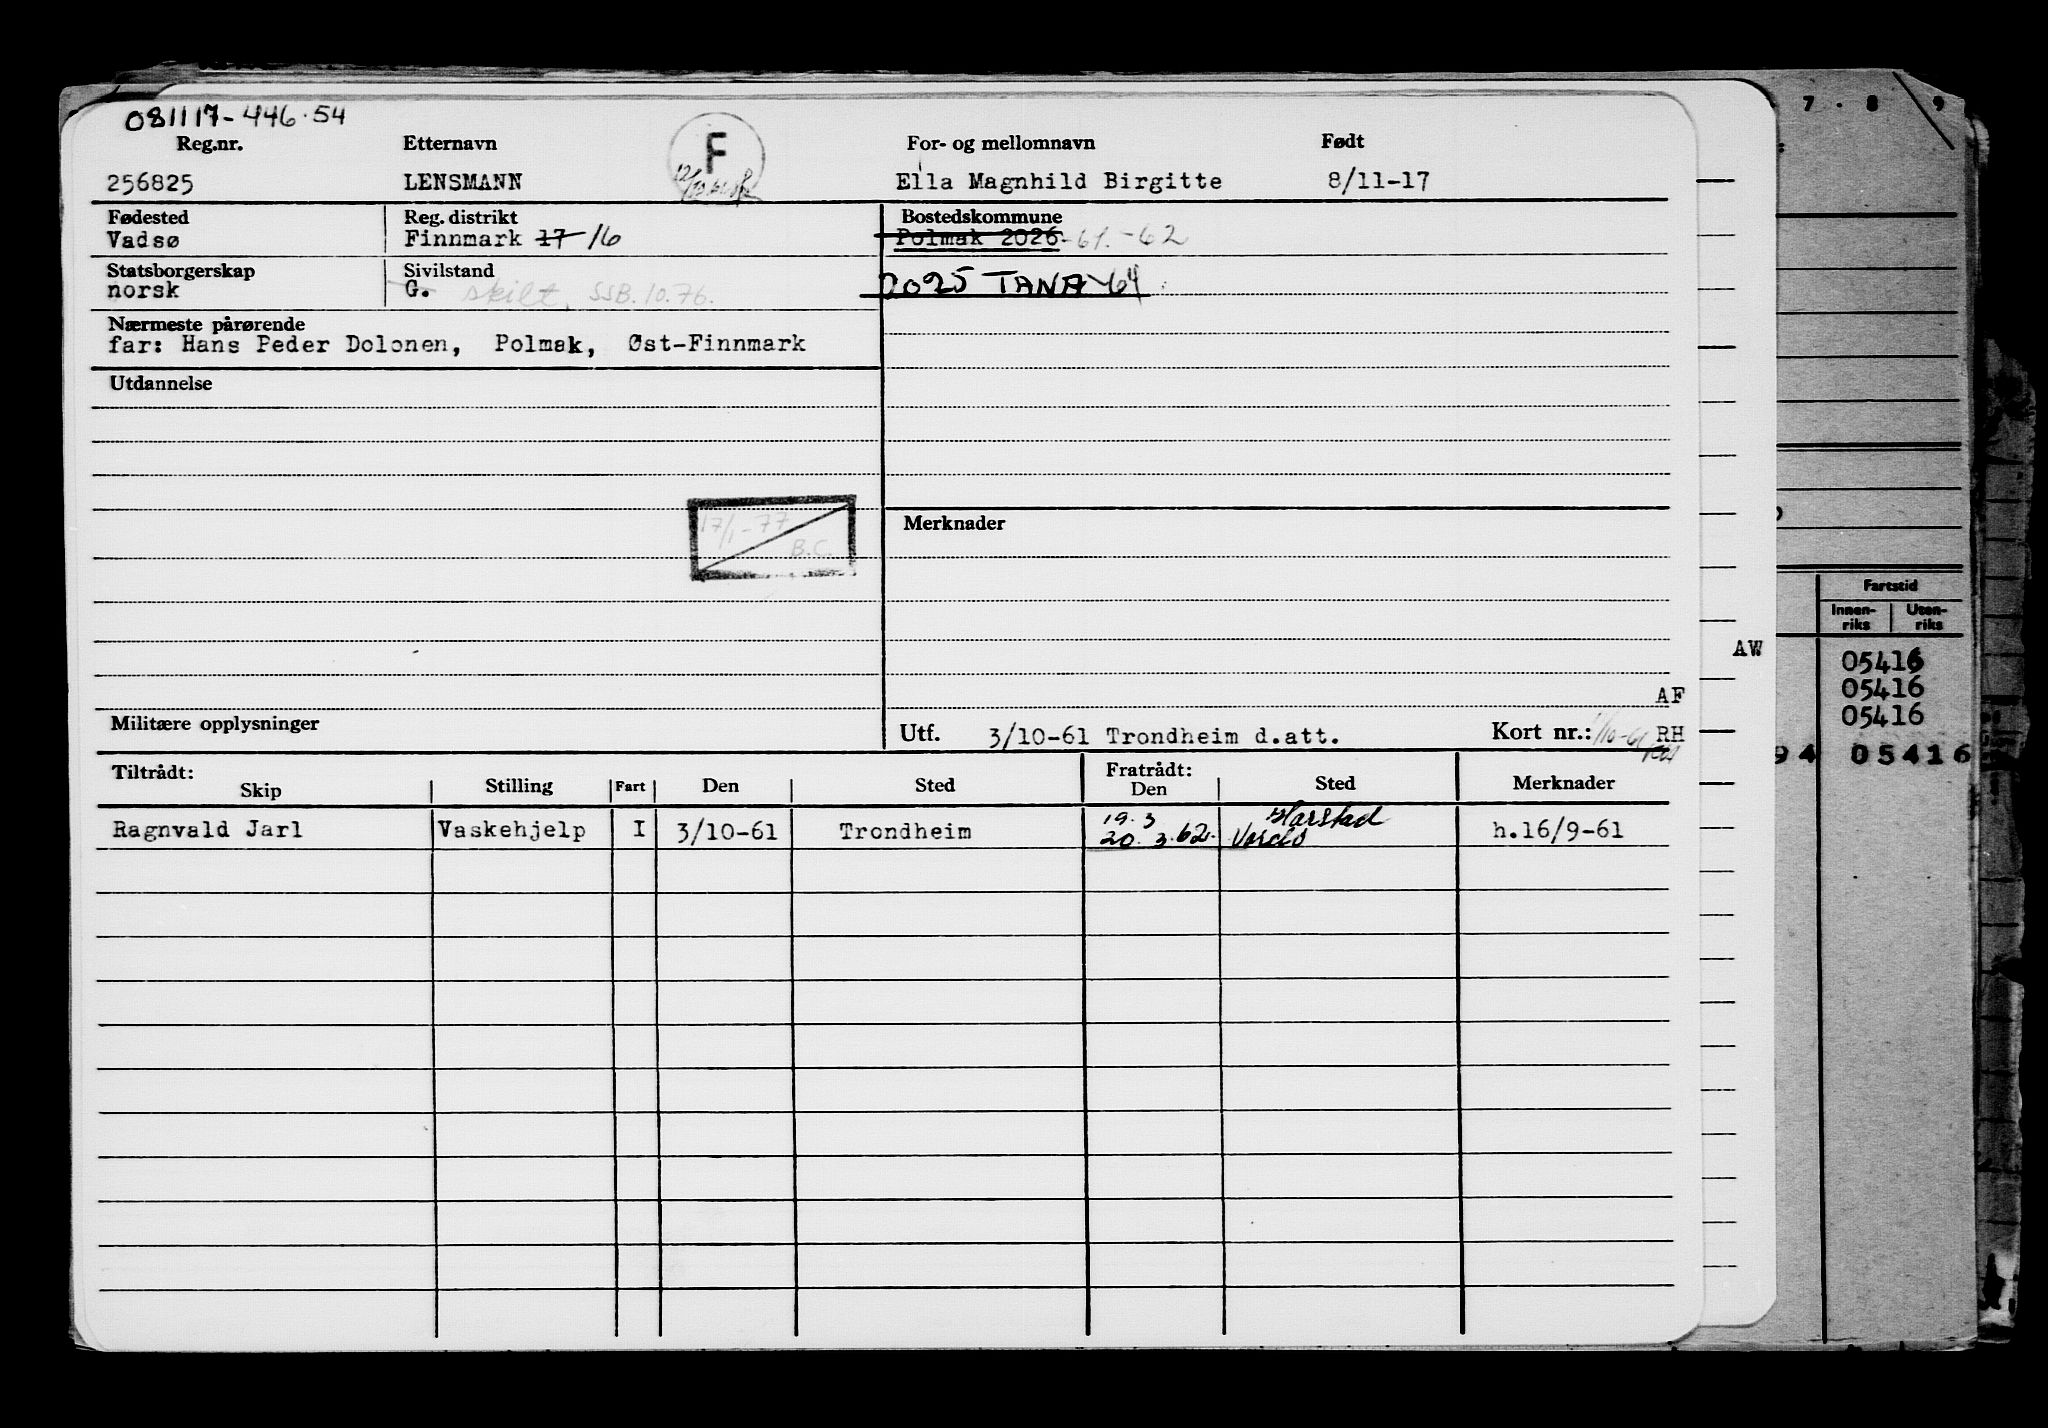 081117-446.54
Reg.nr. Etternavn F For- og mellomnavn Født
256825 LENSMANN Ella Magnhild Birgitte 8/11-17
Fødested Reg. distrikt Bostedskommune
Vadsø Finnmark 17 16 Polmak 2026-61.-62
Statsborgerskap Sivilstand
norsk G. skilt, SSB.10.76. 2025 TANA-64
Nærmeste pårørende
far: Hans Peder Dolonen, Polmak, Øst-Finnmark
Utdannelse
17/1-77 B.C.
Merknader
AW
AF
Militære opplysninger Utf. 3/10-61 Trondheim d.att. Kort nr.: RH
Tiltrådt: Fratrådt:
Skip Stilling Fart Den Sted Den Sted Merknader
19.3 Harstad
Ragnvald Jarl Vaskehjelp I 3/10-61 Trondheim 20.3.62. Vardø h.16/9-61
7 . 8 9
Fartstid
Innen-riks Uten-riks
05416
05416
05416
94 05416